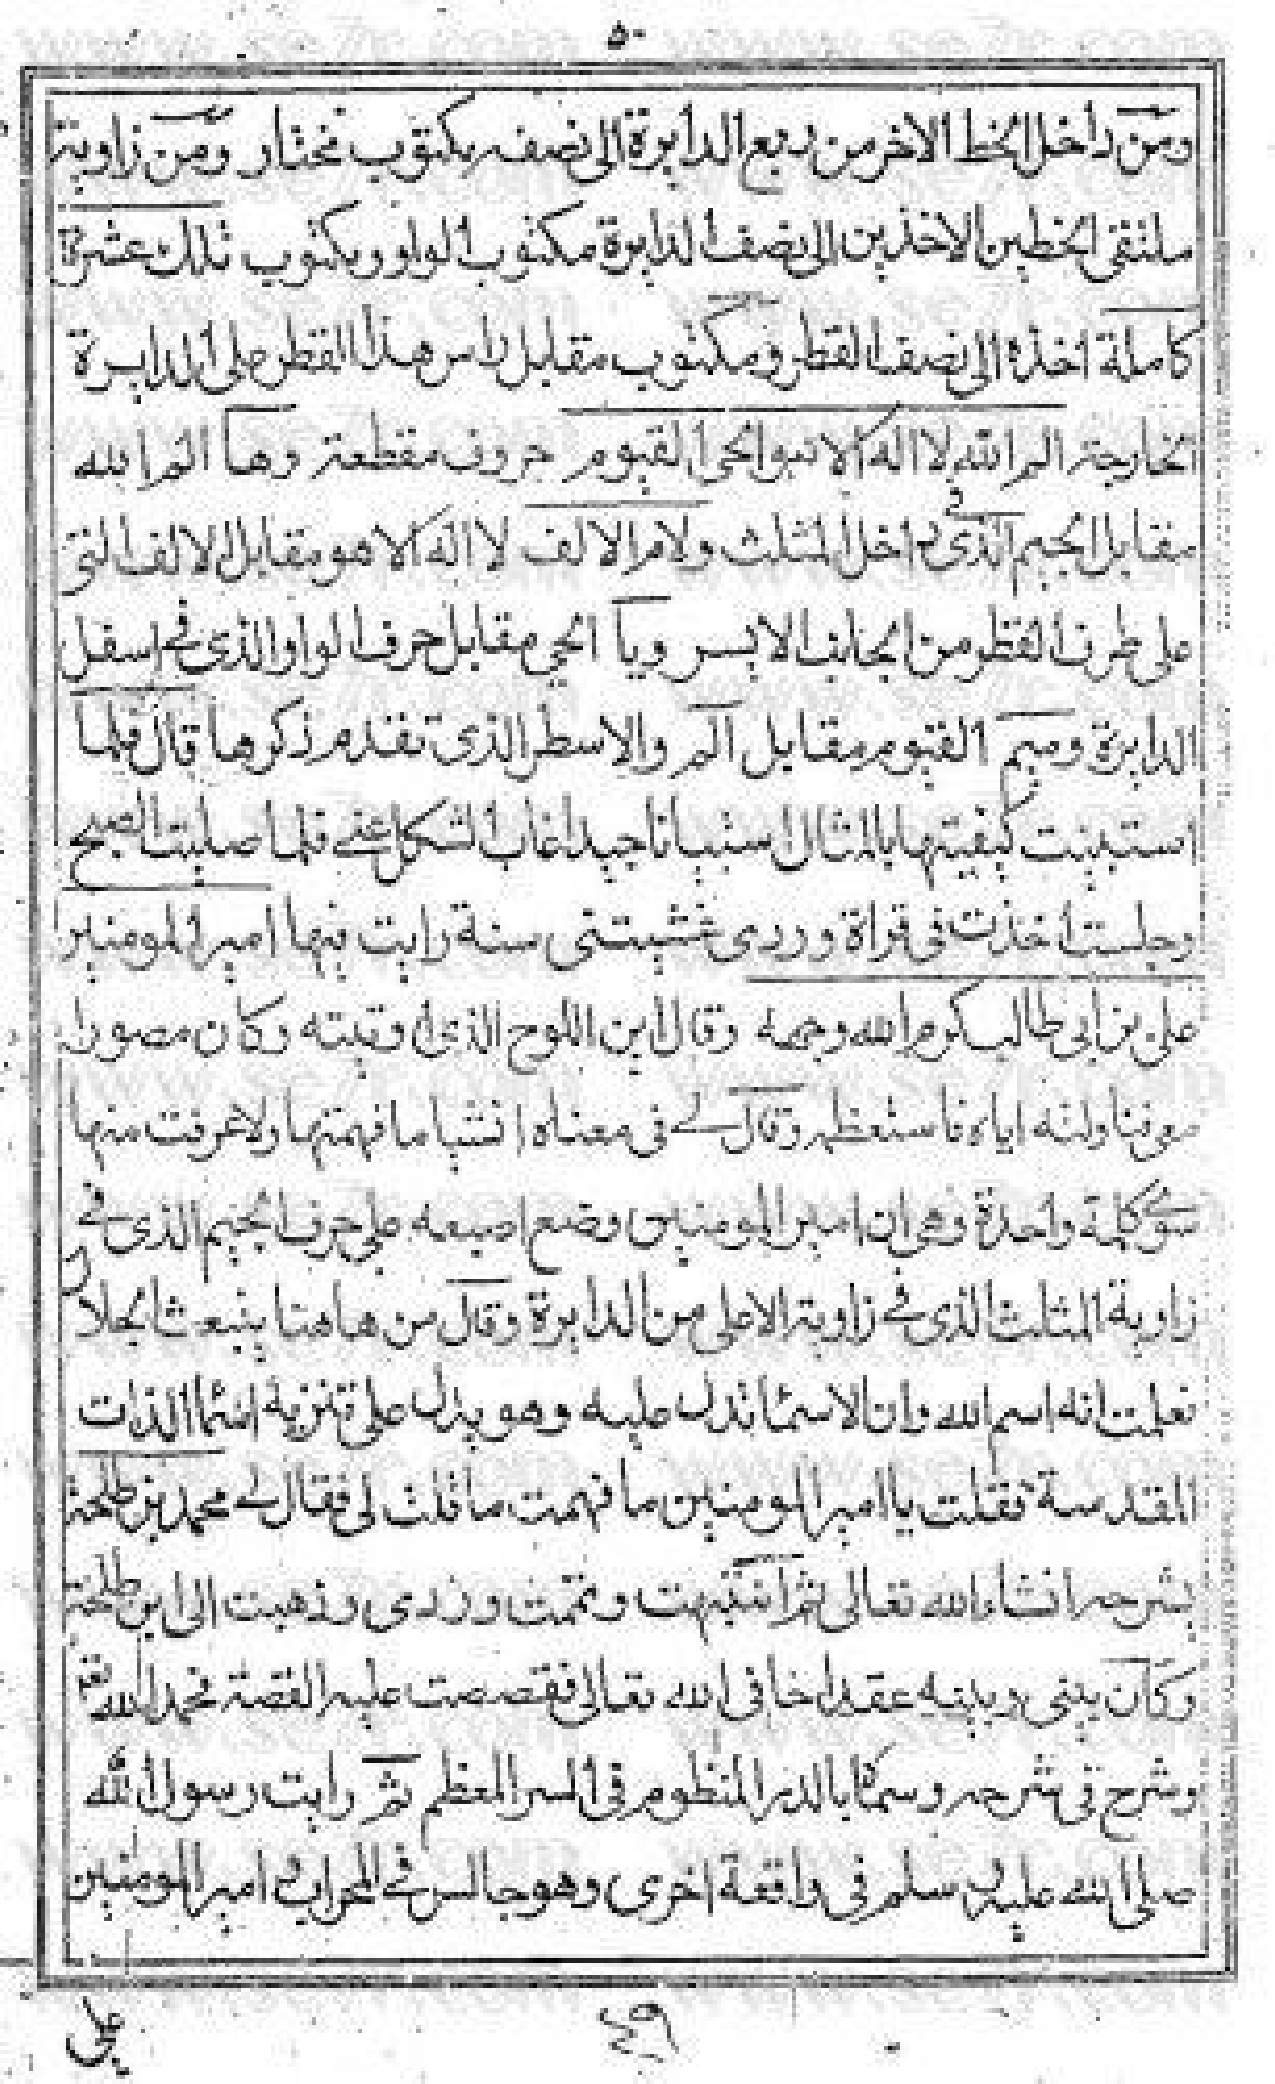 ٥٠
ومن داخل الخط الاخر من ربع الدايرة الى نصفه مكتوب نختار ومن زاوية
ملتقى الخطين الاخذين الى نصف الدايرة مكتوب الواو ومكتوب تلك عشرة
كاملة اخذه الى نصف القطر ومكتوب مقابل راس هذا القطر على الدايرة
الخارجة الم الله لا اله الا هو الحي القيوم حروف مقطعة وها الم الله
مقابل الجيم الذى فى داخل المثلث ولام الالف لا اله الا هو مقابل الالف التى
على طرف القطر من الجانب الايسر ويا الحي مقابل حرف الواو الذى فى اسفل
الدايرة وميم القيوم مقابل الم والاسطر الذى تقدم ذكرها قال فلما
استبينت كيفيتها بالمثال استبيانا جيدا غاب الشكل عنى فلما صليت الصبح
وجلست اخذت فى قراة وردى غشيتنى سنة رايت فيها امير المومنين
على بن ابى طالب كرم الله وجهه وقال اين اللوح الذى اوقيته وكان مصورا
معى فناولته اياه فاستعظمه وقال لى فى معناه اشيا ما فهمتها ولا عرفت منها
سوى كلمة واحدة وهى ان امير المومنين وضع اصبعه على حرف الجيم الذى فى
زاوية المثلث الذى فى زاوية الاعلى من الدايرة وقال من هاهنا ينبعث الجلال
فعلمت انه اسم الله وان الاسما تدل عليه وهو يدل على تنزيه اسما الذات
المقدسة فقلت يا امير المومنين ما فهمت ما قلت لى فقال لى محمد بن طلحة
يشرحه انشاء الله تعالى ثم انتبهت وتممت وردى وذهبت الى ابن طلحة
وكان بينى وبينه عقد اخا فى الله تعالى فقصصت عليه القصة فحمد الله تعالى
وشرح فى شرحه وسماه بالدر المنظوم فى السر المعظم ثم رايت رسول الله
صلى الله عليه وسلم فى واقعة اخرى وهو جالس فى المحراب امير المومنين
على
٤٩